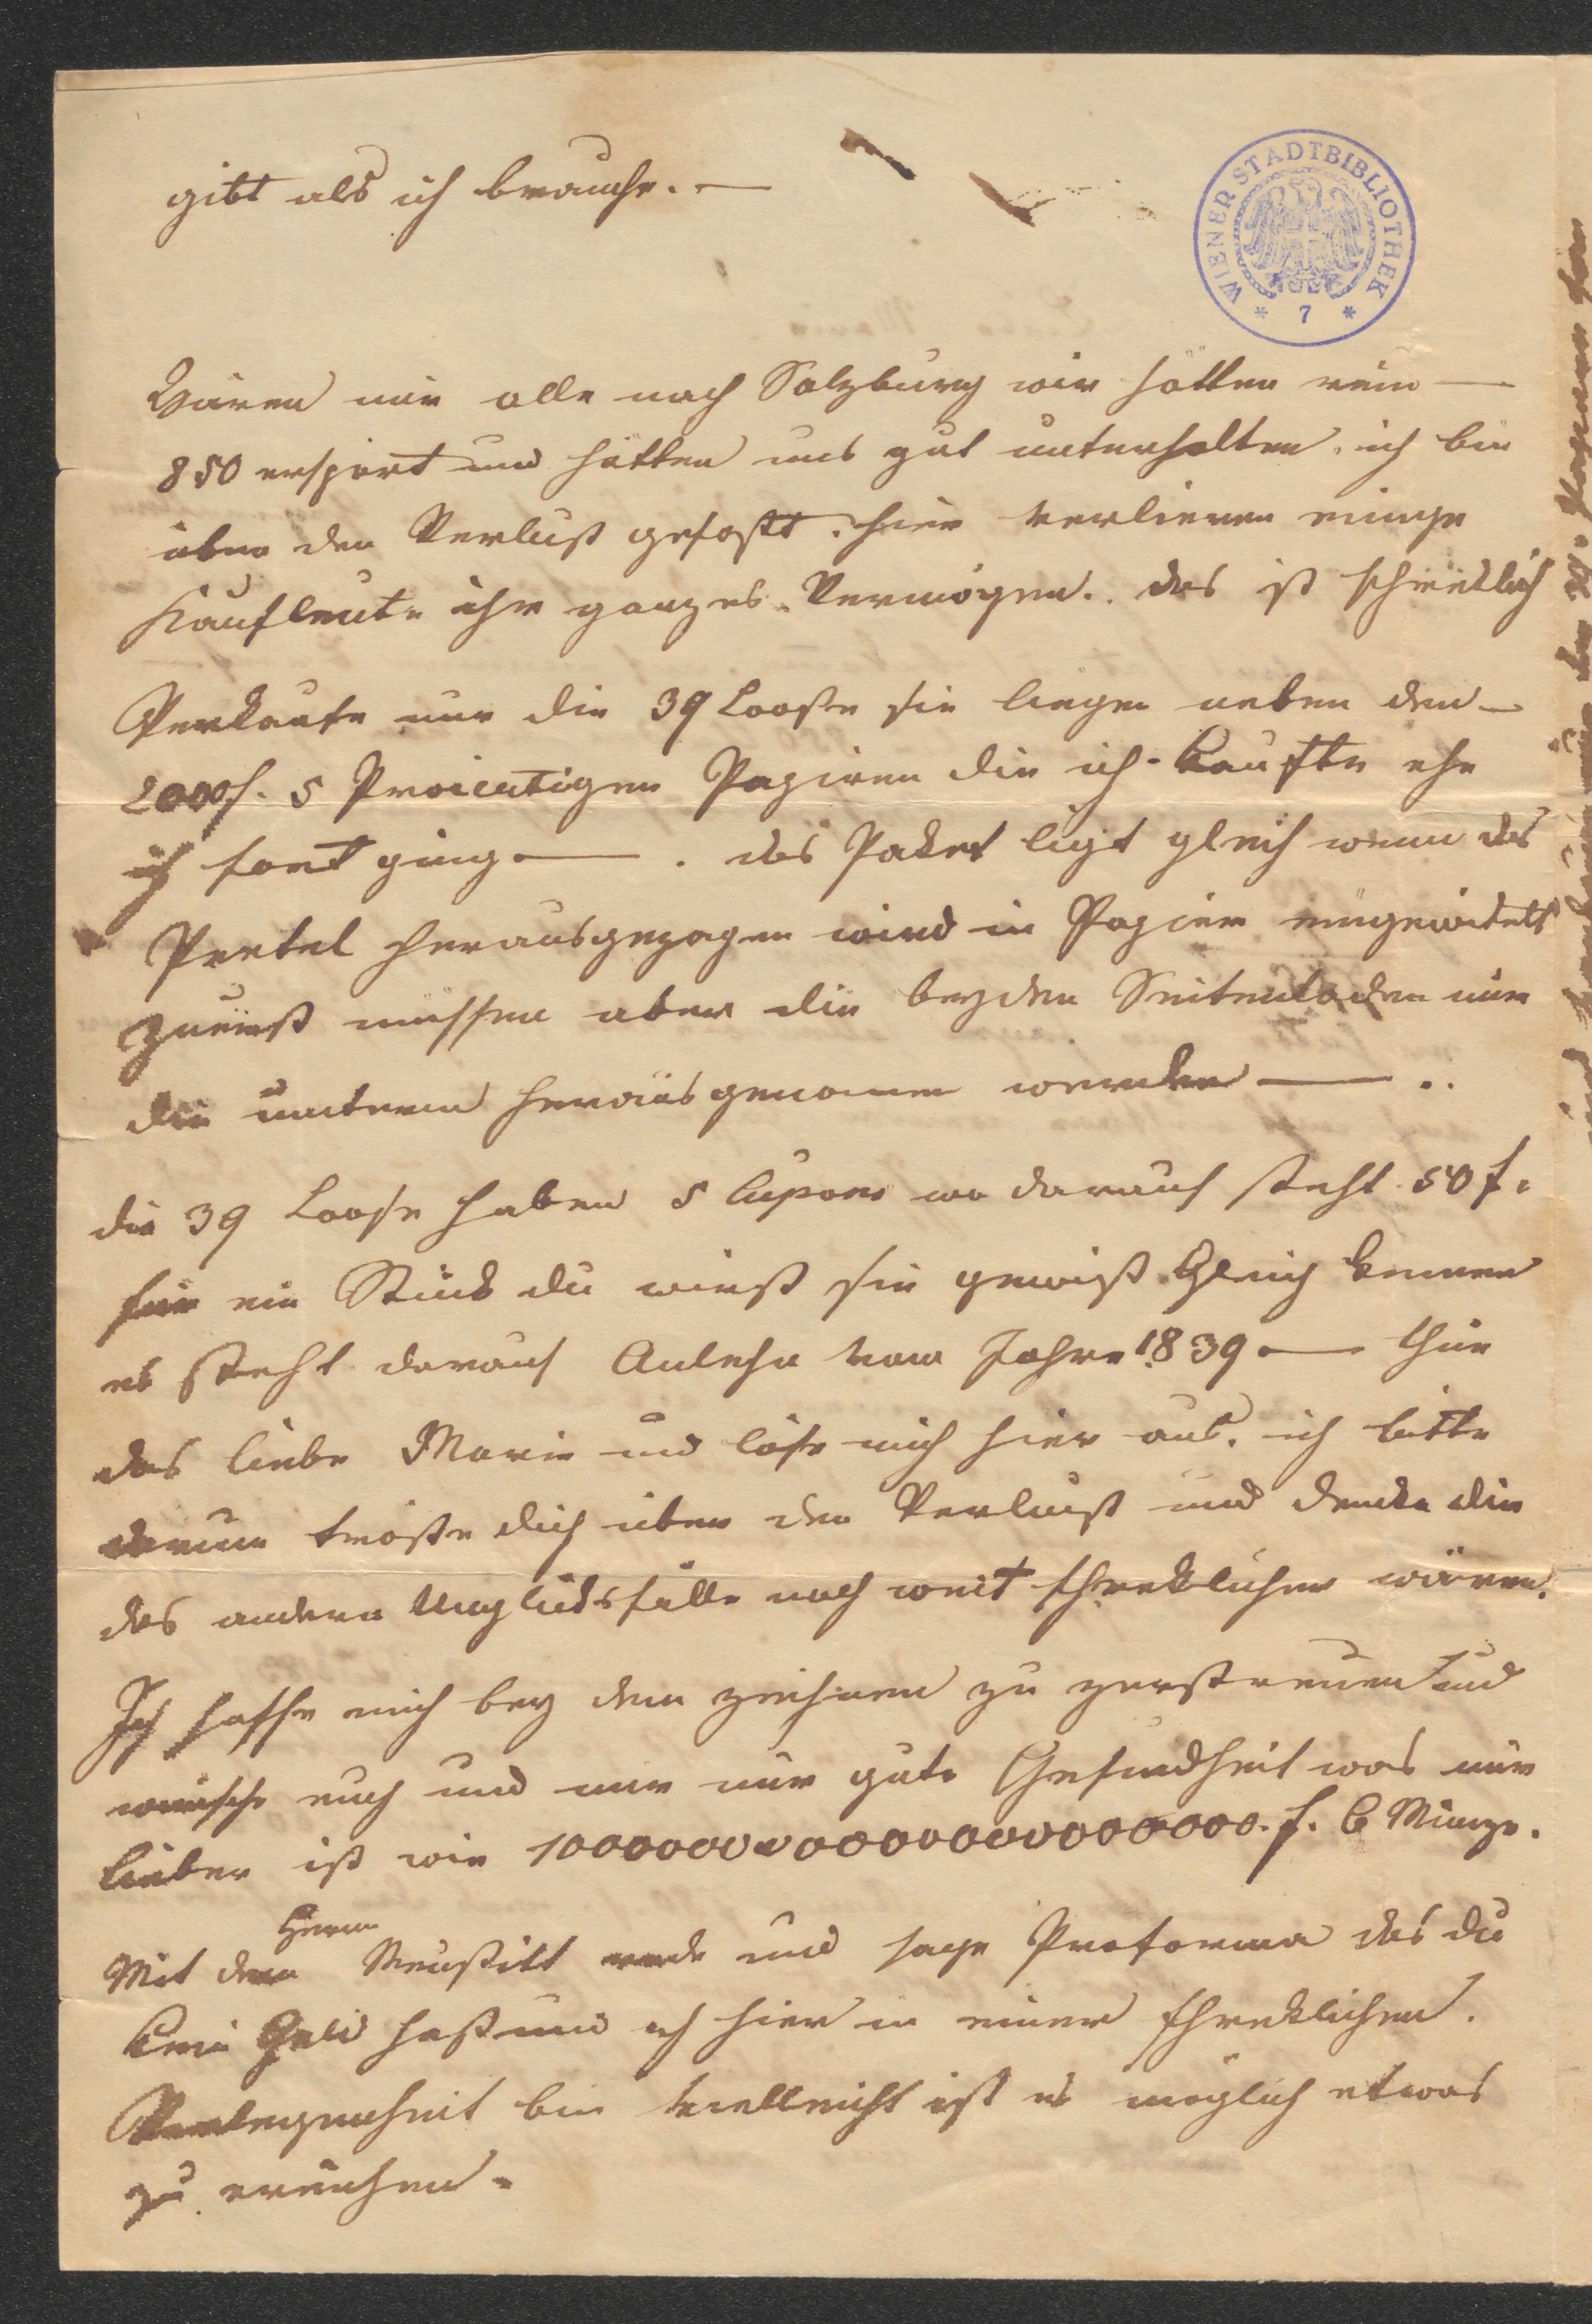 gibt als ich brauche. —
WIENER STADTBIBLIOTHEK
* 7 *
Wären wir alle nach Salzburg wir hätten rein —
850 erspart und hätten uns gut unterhalten. ich bin
über den Verlust gefaßt. hier verlieren einige
Kaufleute ihr ganzes Vermögen. das ist schreklich
Verkaufe nur die 39 Looße sie liegen neben den —
2000f. 5 Procentigen Papieren die ich kaufte ehe
ich fort ging — . das Paket ligt gleich wenn das
Pretel herausgezogen wird in Papier eingewikelt
zuerst müssen aber die beyden Seitenladen nur
die unteren herausgenomen werden — ..
die 39 Loose haben 5 Cupons wo darauf steht 50 f.
für ein Stück du wirst sie gewiß Gleich kennen
es steht darauf Anlehn vom Jahre 1839 — thue
das liebe Marie und löse mich hier aus. ich bitte
darum tröste dich über den Verlust und denke dir
das andere Unglücksfälle noch weit schreklicher wären.
Ich hoffe mich bey dem zeichnen zu zerstreuen und
wünsche euch und mir nur gute Gesundheit was mir
lieber ist wie 10000000000000000000. f. C Münze.
Mit dem Herrn rede und sage Proforma das du
kein Geld hast und ich hier in einer schreklichen.
Verlegenheit bin vielleicht ist es möglich etwas
zu erreichen.